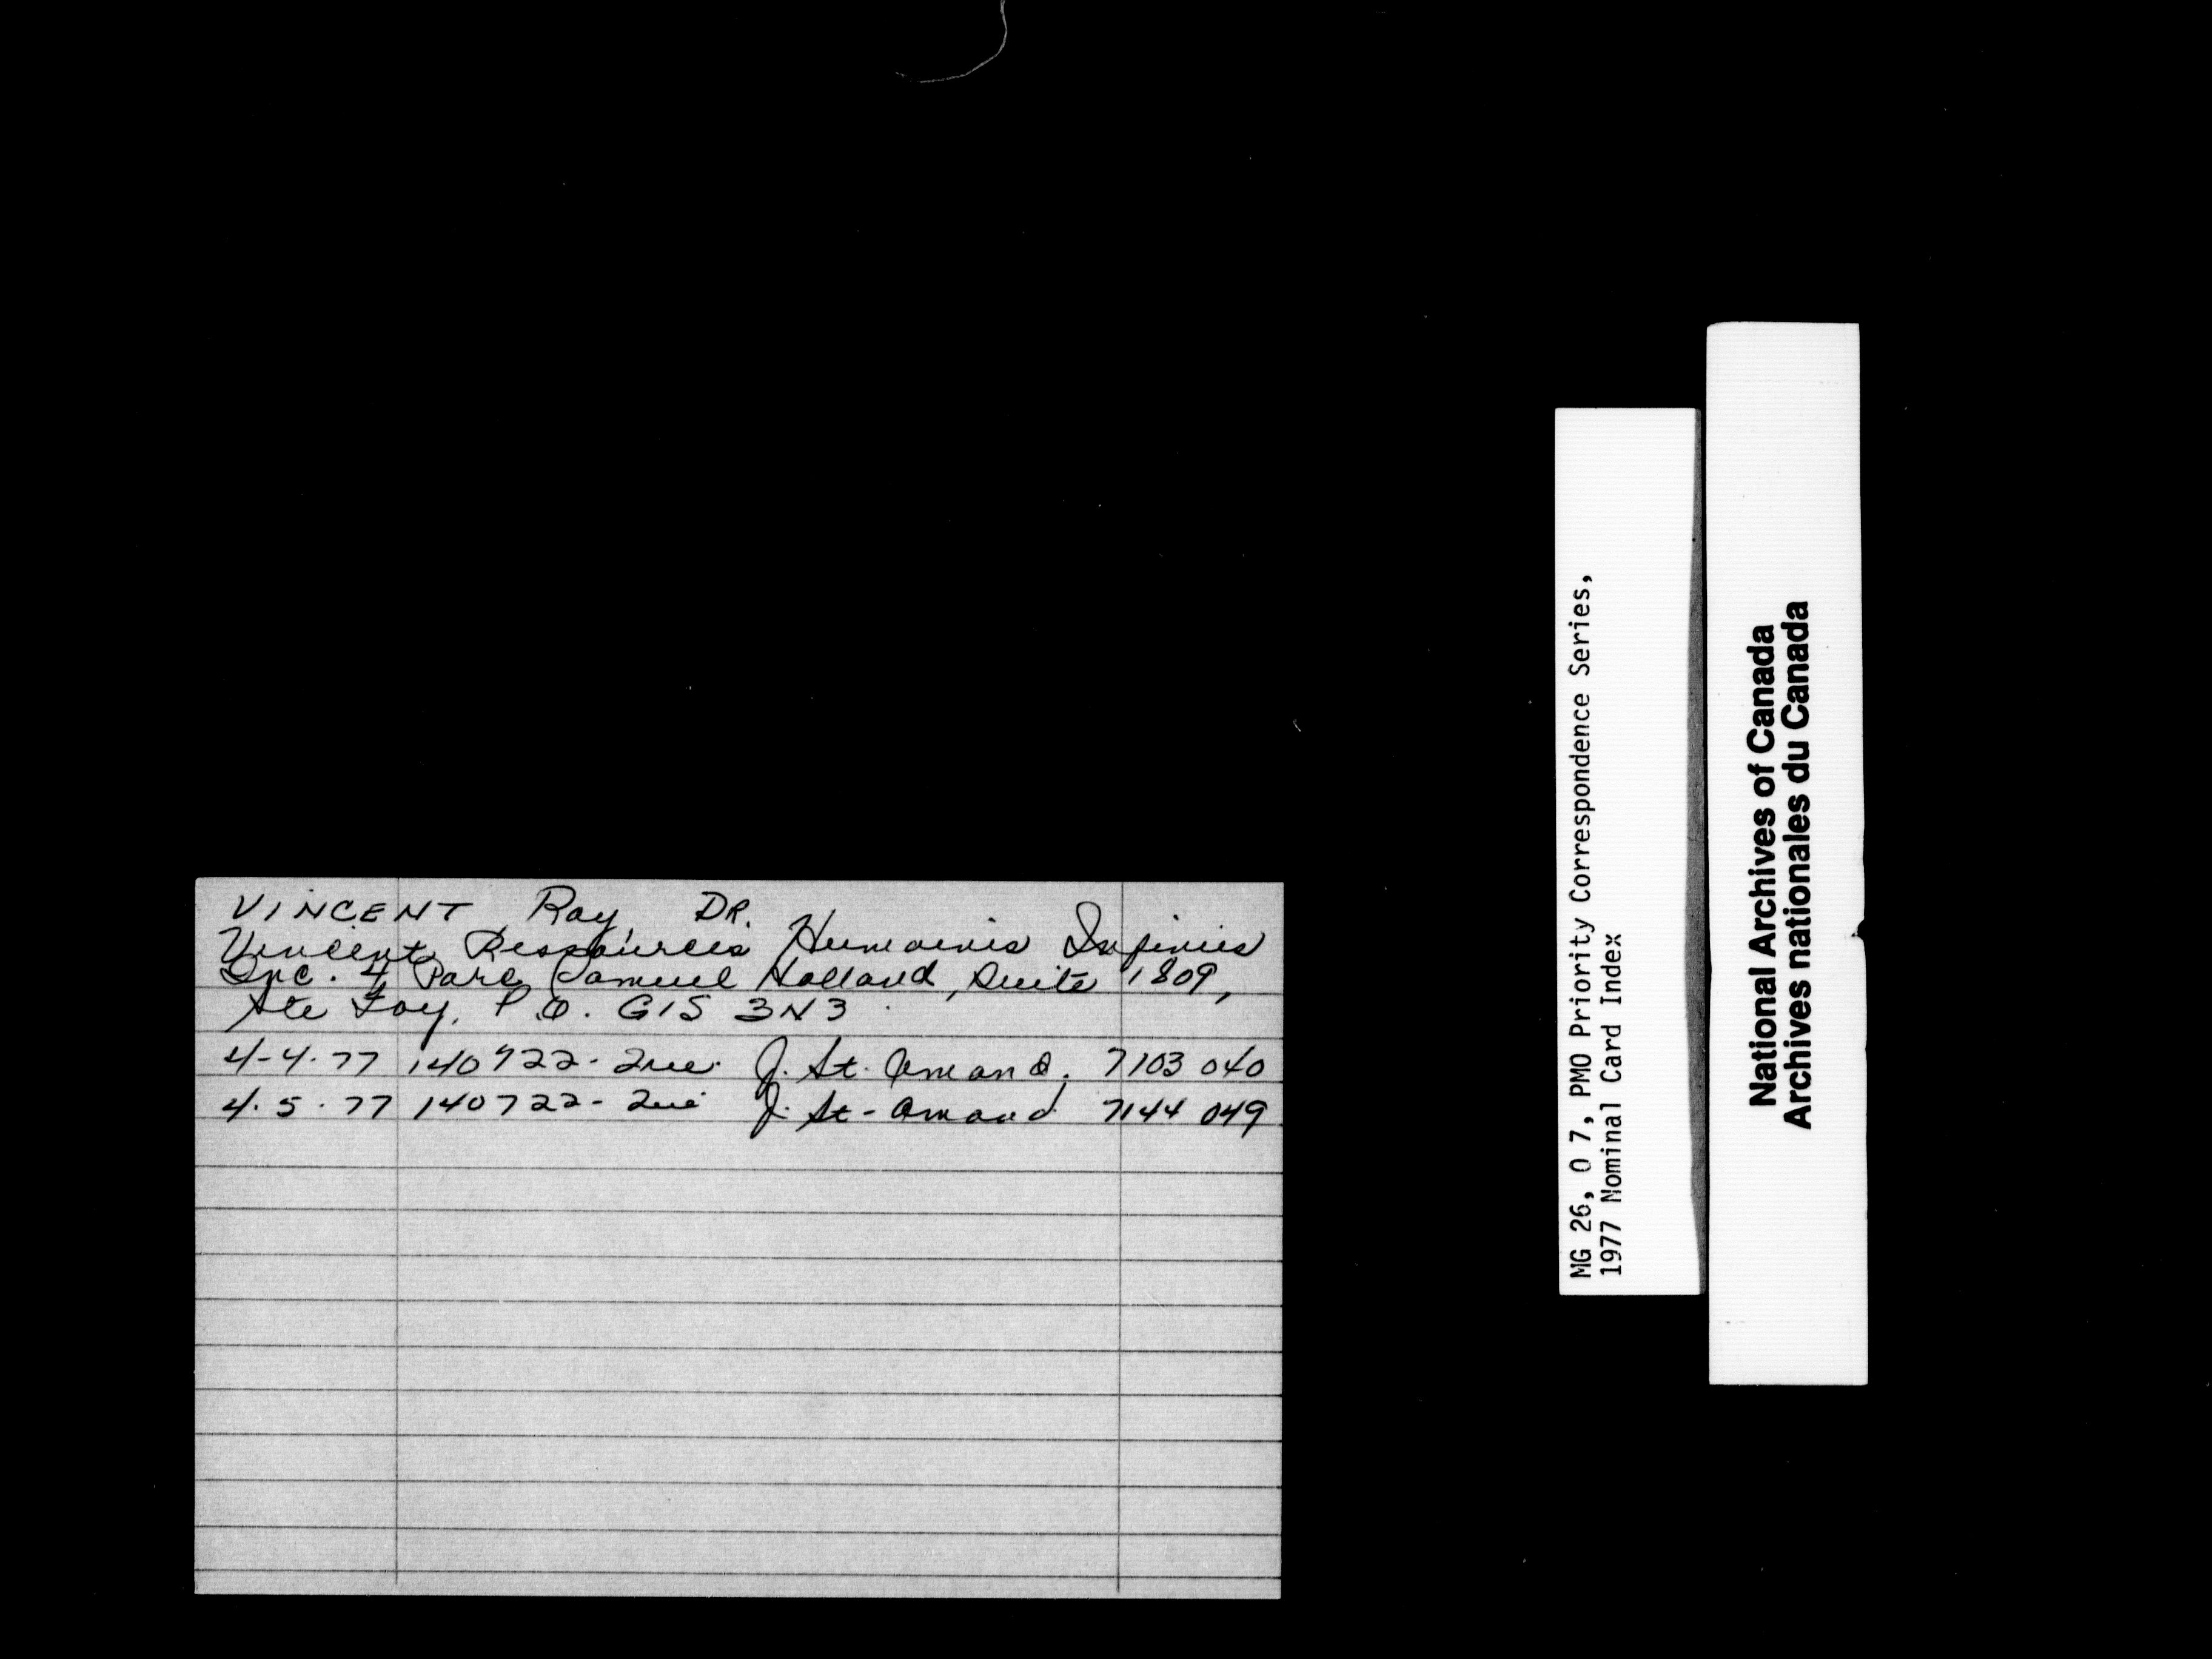 VINCENT Ray, DR.
Vincent Ressources Humaines Infinies
Inc. 4 Parc Samuel Holland, Suite 1809,
Ste Foy, P.Q. G1S 3N3
4-4-77 140722- J. St. Amand. 7103 040
4.5.77 140722- J. St-Amand 7144 049
MG 26, O 7, PMO Priority Correspondence Series,
1977 Nominal Card Index
National Archives of Canada
Archives nationales du Canada